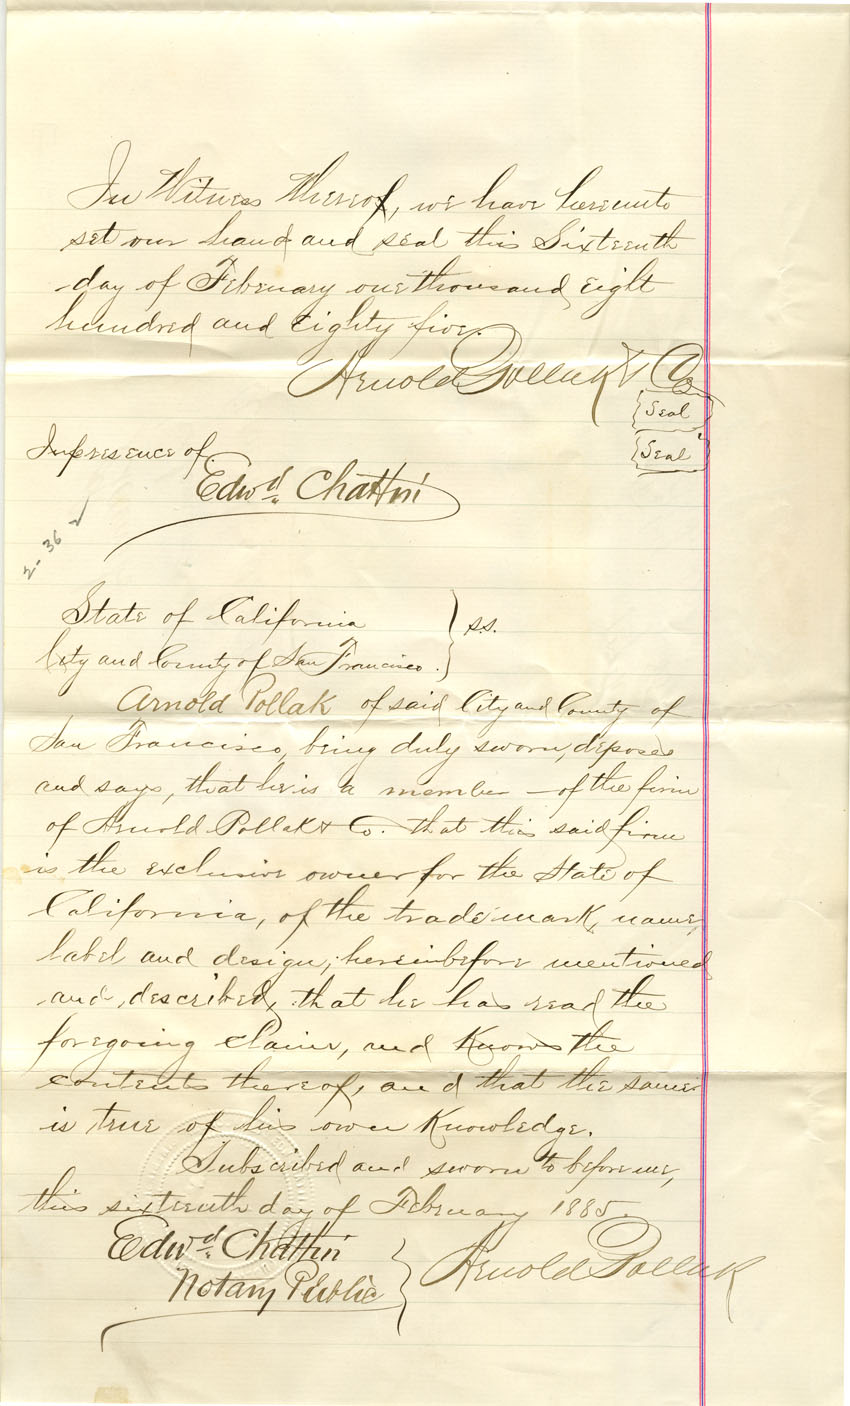 In Witness Whereof, we have hereunto
set our hand and seal this Sixteenth
day of February one thousand eight
hundred and eighty five.
Arnold Pollak & Co
{Seal}
{Seal}
In presence of
Edwd. Chattin
2-36
State of California } s.s.
City and County of San Francisco. }
Arnold Pollak of said City and County of
San Francisco, being duly sworn, deposes
and says, that he is a member - of the firm
of Arnold Pollak & Co. that this said firm
is the exclusive owner for the State of
California, of the trade mark, name,
label and design, hereinbefore mentioned
and described, that he has read the
foregoing claim, and Knows the
contents thereof, and that the same
is true of his own Knowledge.
Subscribed and sworn to before me,
this sixteenth day of February 1885.
Edwd. Chattin }
Notary Public } Arnold Pollak